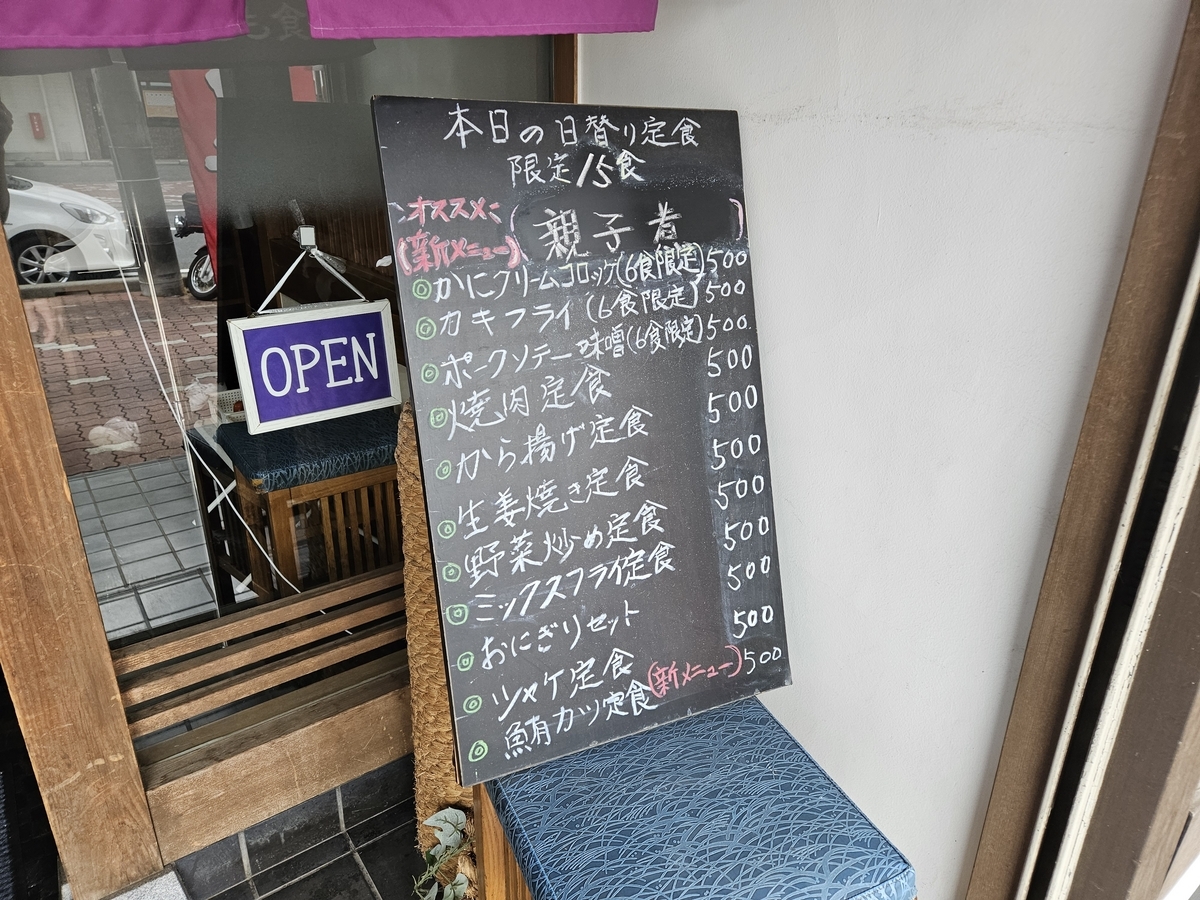 本日の日替り定食
限定15食
オススメ
(新メニュー) (親子煮)
◎かにクリームコロッケ(6食限定) 500
◎カキフライ (6食限定) 500
◎ポークソテー味噌(6食限定) 500
◎焼肉定食 500
◎から揚げ定食 500
◎生姜焼き定食 500
◎野菜炒め定食 500
◎ミックスフライ定食 500
◎おにぎりセット 500
◎シャケ定食 500
◎鮪カツ定食 (新メニュー) 500
OPEN